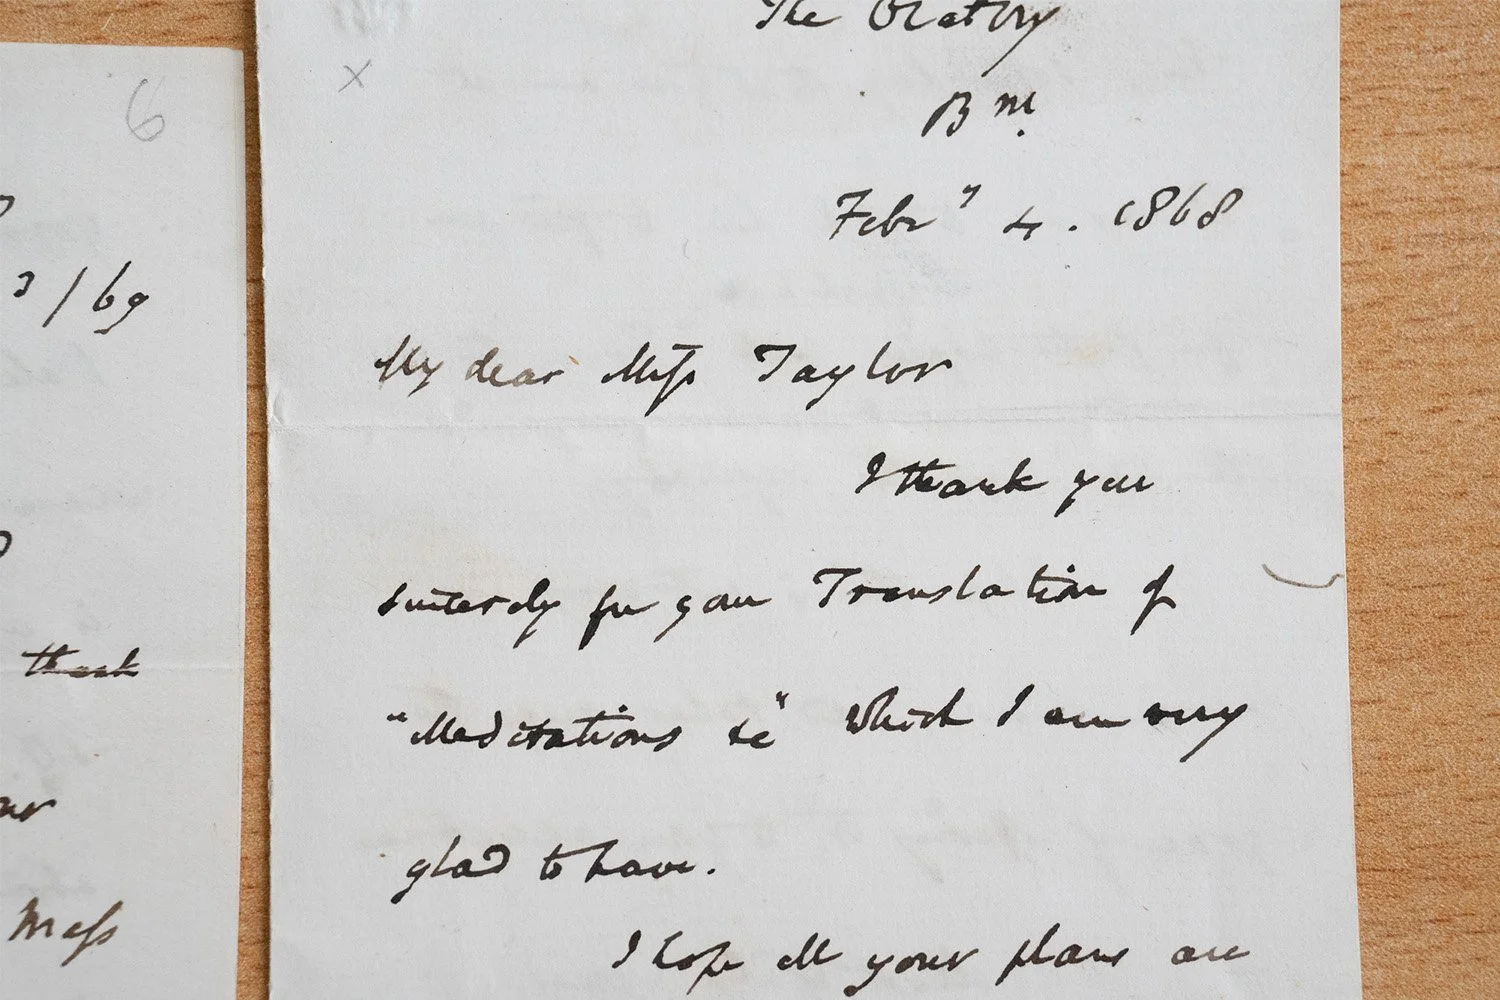 6
3/69
thank
Mass
x
The Oratory
Bm.
Febry 4. 1868
My dear Miss Taylor
I thank you
sincerely for your Translation of
"Meditations &c" which I am very
glad to have.
I hope all your plans are